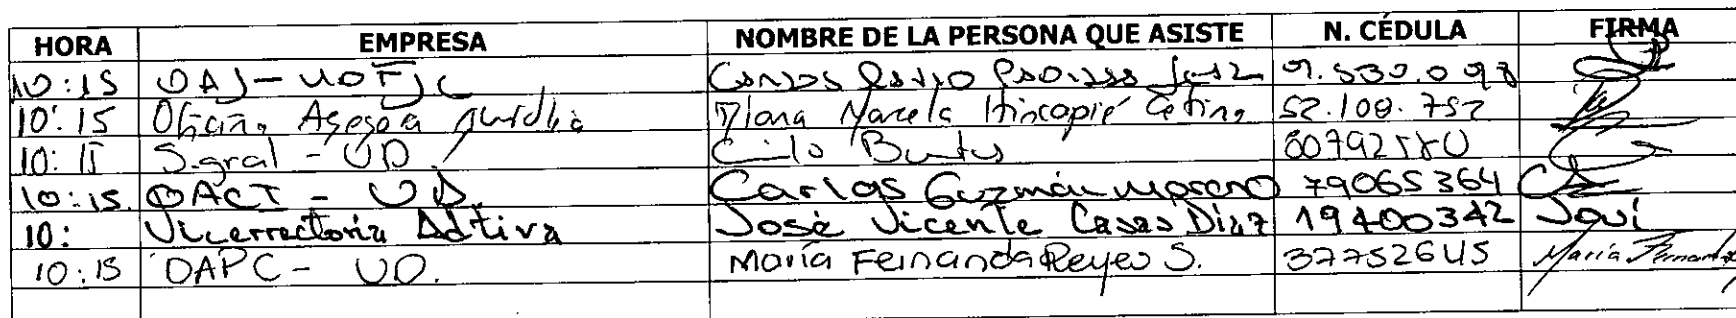 HORA EMPRESA NOMBRE DE LA PERSONA QUE ASISTE N. CÉDULA FIRMA
10:15 OAJ - UDFJC
10:15 Oficina Asesora Jurídica Diana Marcela Hincapié Cetina 52.108.752
10:15 S.gral - UD
10:15. OACI - UD Carlos Guzmán Moreno 79065364
10: Vicerrectoria Adtiva José Vicente Casas Díaz 19400342 Joví
10:15 OAPC - UD. María Fernanda Reyes S. 37752645 María Fernanda